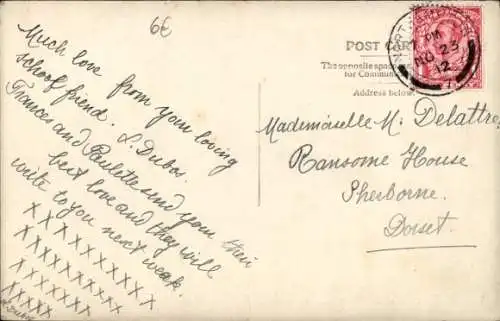 6€
Much love from your loving
school friend. L. Dubos.
Frances and Paulette send your their
best love and they will
write to you next weak.
X X X X X X X X X
X X X X X X X X X
X X X X X X X X
X X X X X X
X X X X X
POST CARD
The opposite spac
for Commun
Address below.
PM
NO 23
12
Mademoiselle M. Delattre,
Ransome House
Sherborne.
Dorset.